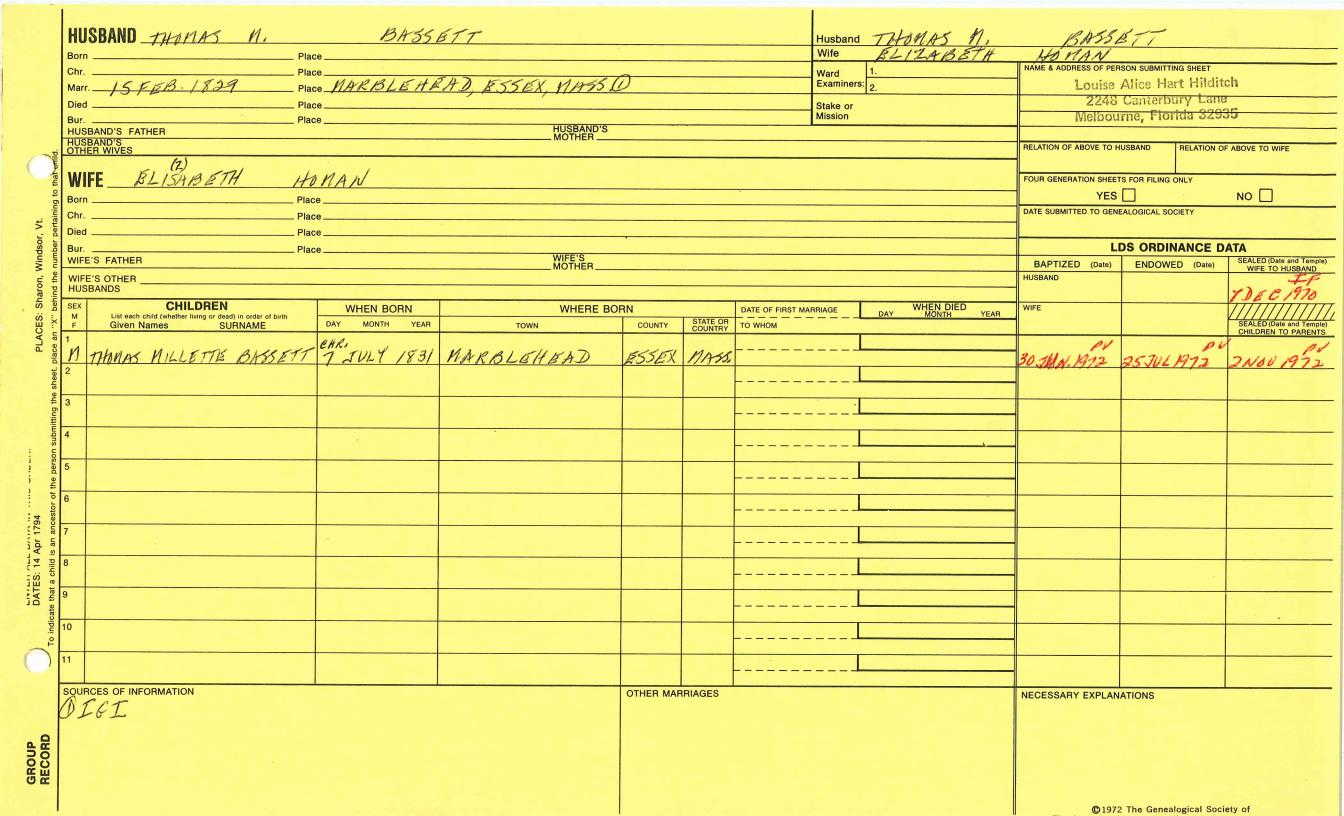 HUSBAND THOMAS M. BASSETT
Born Place
Chr. Place
Marr. 15 FEB. 1829 Place MARBLEHEAD, ESSEX, MASS ①
Died Place
Bur. Place
HUSBAND'S FATHER HUSBAND'S MOTHER
HUSBAND'S OTHER WIVES
(2)
WIFE ELISABETH HOMAN
Born Place
Chr. Place
Died Place
Bur. Place
WIFE'S FATHER WIFE'S MOTHER
WIFE'S OTHER HUSBANDS
Husband THOMAS M. BASSETT
Wife ELIZABETH HOMAN
Ward Examiners: 1.
2.
Stake or Mission
NAME & ADDRESS OF PERSON SUBMITTING SHEET
Louise Alice Hart Hilditch
2248 Canterbury Lane
Melbourne, Florida 32935
RELATION OF ABOVE TO HUSBAND RELATION OF ABOVE TO WIFE
FOUR GENERATION SHEETS FOR FILING ONLY
YES NO
DATE SUBMITTED TO GENEALOGICAL SOCIETY
LDS ORDINANCE DATA
BAPTIZED (Date) ENDOWED (Date) SEALED (Date and Temple) WIFE TO HUSBAND
HUSBAND IF
7 DEC 1970
WIFE
SEALED (Date and Temple) CHILDREN TO PARENTS
SEX M F
CHILDREN
List each child (whether living or dead) in order of birth
Given Names SURNAME
WHEN BORN
DAY MONTH YEAR
WHERE BORN
TOWN COUNTY STATE OR COUNTRY
DATE OF FIRST MARRIAGE
TO WHOM
WHEN DIED
DAY MONTH YEAR
1 CHR. PV PV PV
M THOMAS MILLETTE BASSETT 7 JULY 1831 MARBLEHEAD ESSEX MASS 30 JAN. 1972 25 JUL 1972 2 NOV 1972
2
3
4
5
6
7
8
9
10
11
SOURCES OF INFORMATION
① IGI
OTHER MARRIAGES
NECESSARY EXPLANATIONS
©1972 The Genealogical Society of
PLACES: Sharon, Windsor, Vt.
DATES: 14 Apr 1794
To indicate that a child is an ancestor of the person submitting the sheet, place an "X" behind the number pertaining to that child.
GROUP RECORD